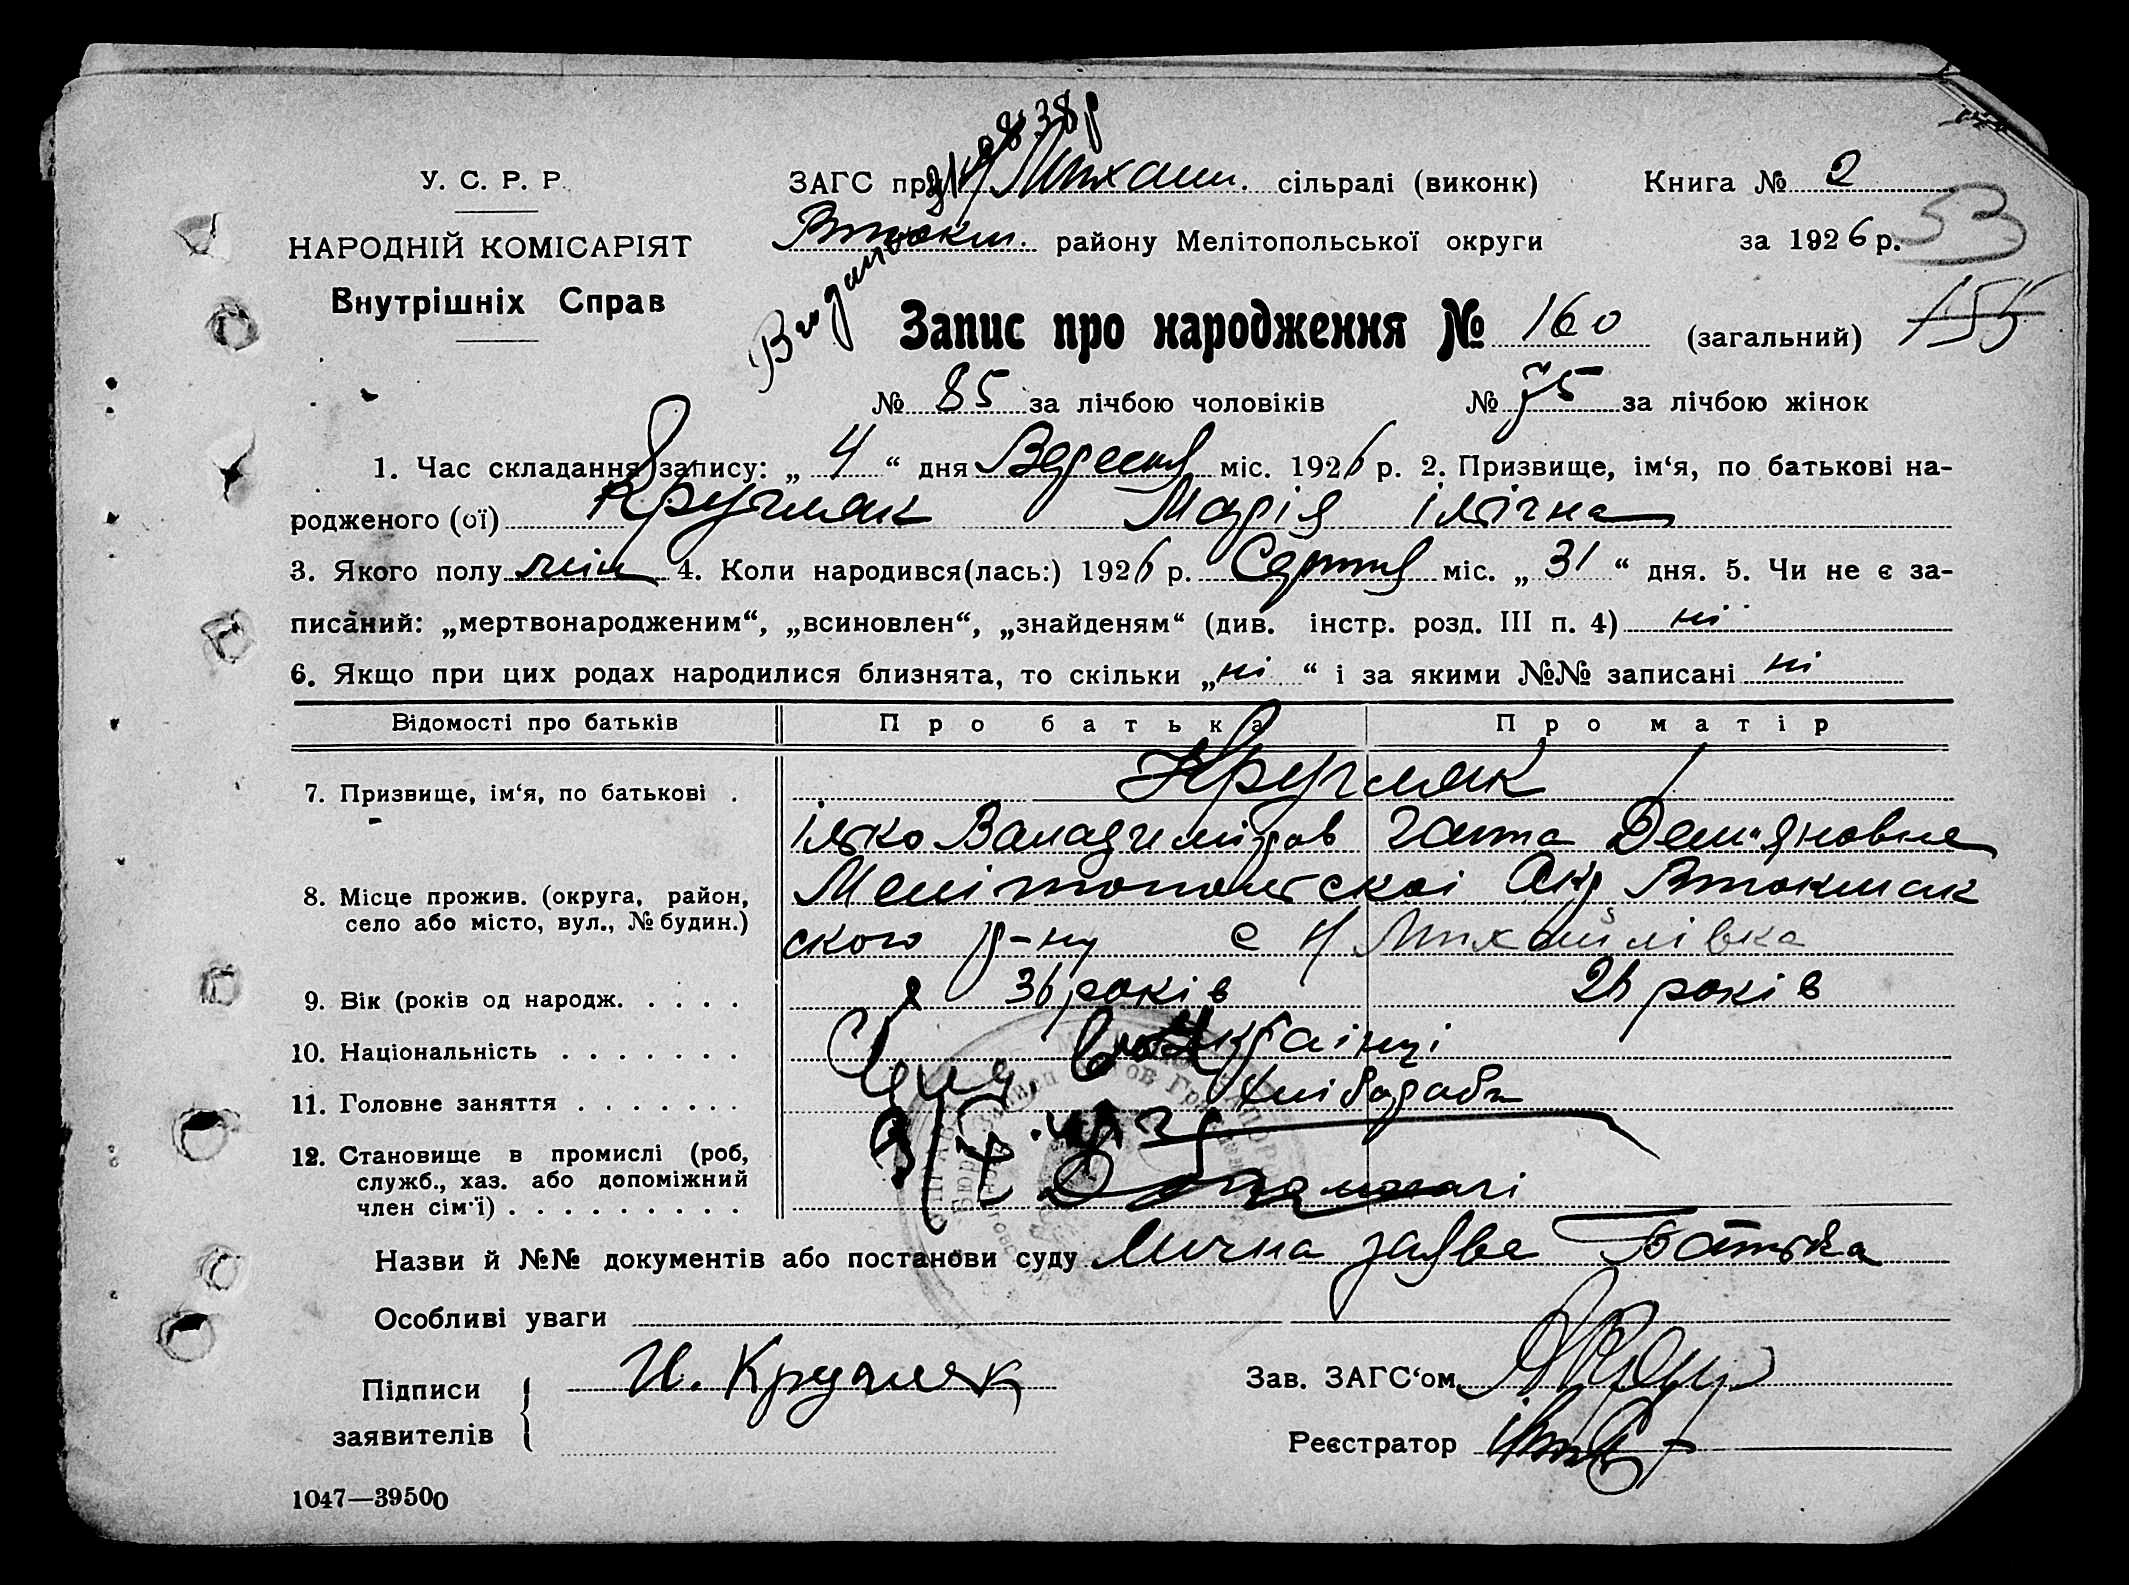 У. С. Р. Р.
НАРОДНІЙ КОМІСАРІЯТ
Внутрішніх Справ
ЗАГС при Н Михайл. сільраді (виконк)
Втокм. району Мелітопольської округи
Книга № 2
за 1926 р.
53
155
Запис про народження № 160 (загальний)
№ 85 за лічбою чоловіків № 75 за лічбою жінок
1. Час складання запису: „ 4 “ дня Вересня міс. 1926 р. 2. Призвище, ім‘я, по батькові на-
родженого (ої) Кругляк Марія Ілічна
3. Якого полу жін 4. Коли народився(лась:) 1926 р. Серпня міс. „ 31 “ дня. 5. Чи не є за-
писаний: „мертвонародженим“, „всиновлен“, „знайденям“ (див. інстр. розд. III п. 4) ні
6. Якщо при цих родах народилися близнята, то скільки „ ні “ і за якими №№ записані ні
Відомості про батьків Про батька Про матір
7. Призвище, ім‘я, по батькові . Кругляк
Ілько Валадиміров Ганна Дем'яновна
8. Місце прожив. (округа, район, село або місто, вул., № будин.) Мелітопольскоі Окр Втокмак
ского р-ну с Н Михайлівка
9. Вік (років од народж. . . . . 36 років 26 років
10. Національність . . . . . . . Украінці
11. Головне заняття . . . . . . . Хліборобы
12. Становище в промислі (роб,
служб., хаз. або допоміжний
член сім‘ї) . . . . . . . . .
Назви й №№ документів або постанови суду Лична заява Батька
Особливі уваги
Підписи
заявителів
И. Кругляк
Зав. ЗАГС‘ом
Реєстратор
1047—39500